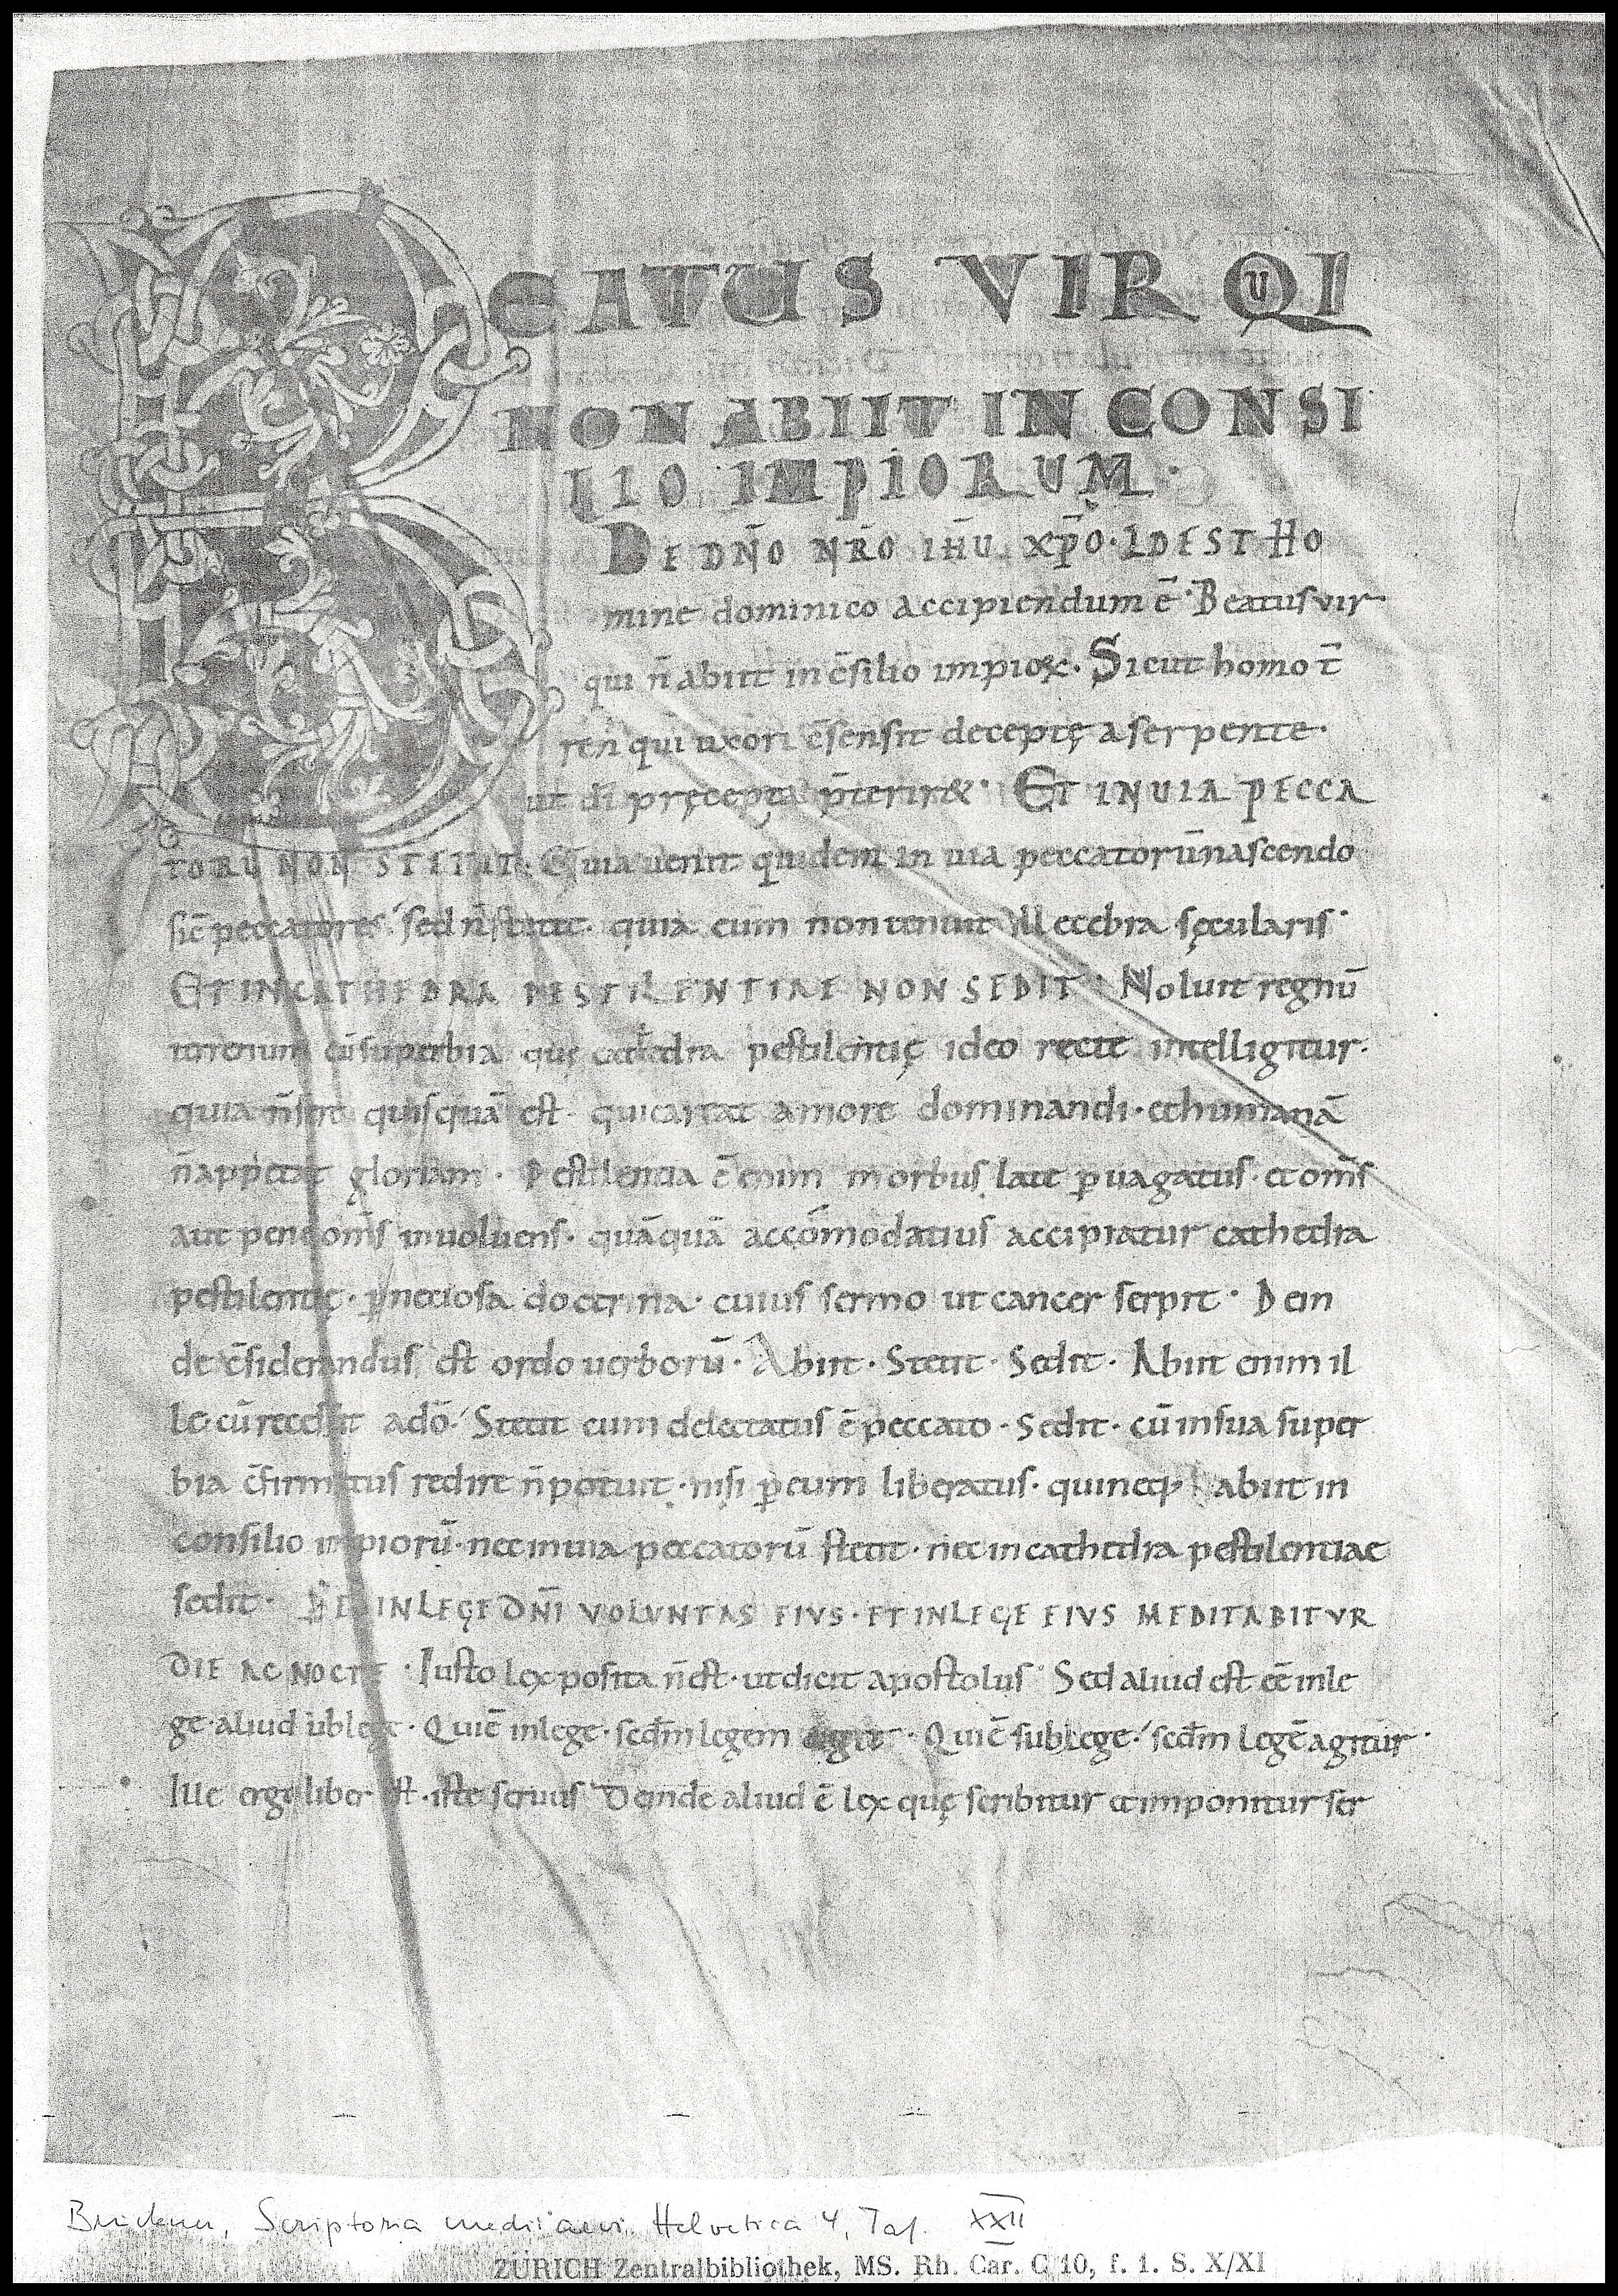 BEATUS VIR QUI
NON ABIIT IN CONSI
LIO IMPIORUM·
DE DN̄O NR̄O IH̄U XP̄O· IDEST HO
mine dominico accipiendum ē· Beatus vir
qui n̄ abiit in c̄silio impioꝝ· Sicut homo t̄
ren̄ qui uxori c̄sensit deceptę a serpente·
ut dī pręcepta p̄terir&· ET IN UIA PECCA
TORŪ NON STETIT· Quia uenit quidem in uia peccatorū nascendo
sic̄ peccatores· sed n̄ stetit· quia eum non tenuit illecebra sęcularis·
ET IN CATHEDRA PESTILENTIAE NON SEDIT· Noluit regnū
terrenum cū superbia quę cathedra pestilentię ideo recte intelligitur·
quia n̄ fere quisquā est· qui careat amore dominandi· et humanā
n̄ appetat gloriam· Pestilentia ē enim morbus late ꝑuagatus· et om̄s
aut pene om̄s inuoluens· quāquā accōmodatius accipiatur cathedra
pestilentię· ꝑnetiosa doctrina· cuius sermo ut cancer serpit· Dein
de c̄siderandus est ordo uerborū· Abiit· Stetit· Sedit· Abiit enim il
le cū recessit a dō· Stetit cum delectatus ē peccato· Sedit· cū in sua super
bia c̄firmatus redire n̄ potuit· nisi ꝑ eum liberatus· qui neq; abiit in
consilio impiorū· nec in uia peccatorū stetit· nec in cathedra pestilentiae
sedit· SED IN LEGE DN̄I VOLVNTAS EIVS· ET IN LEGE EIVS MEDITABITVR
DIE AC NOCTE· Iusto lex posita n̄ est· ut dicit apostolus· Sed aliud est eē in le
ge· aliud sub lege· Qui ē in lege· secd̄m legem agit· Qui ē sub lege· secd̄m legē agitur·
Ille ergo liber est· iste seruus· Deinde aliud ē lex quę scribitur et imponitur ser
Bruckner, Scriptoria medii aevi Helvetica 4, Taf. XXII
ZÜRICH Zentralbibliothek, MS. Rh. Car. C 10, f. 1. S. X/XI